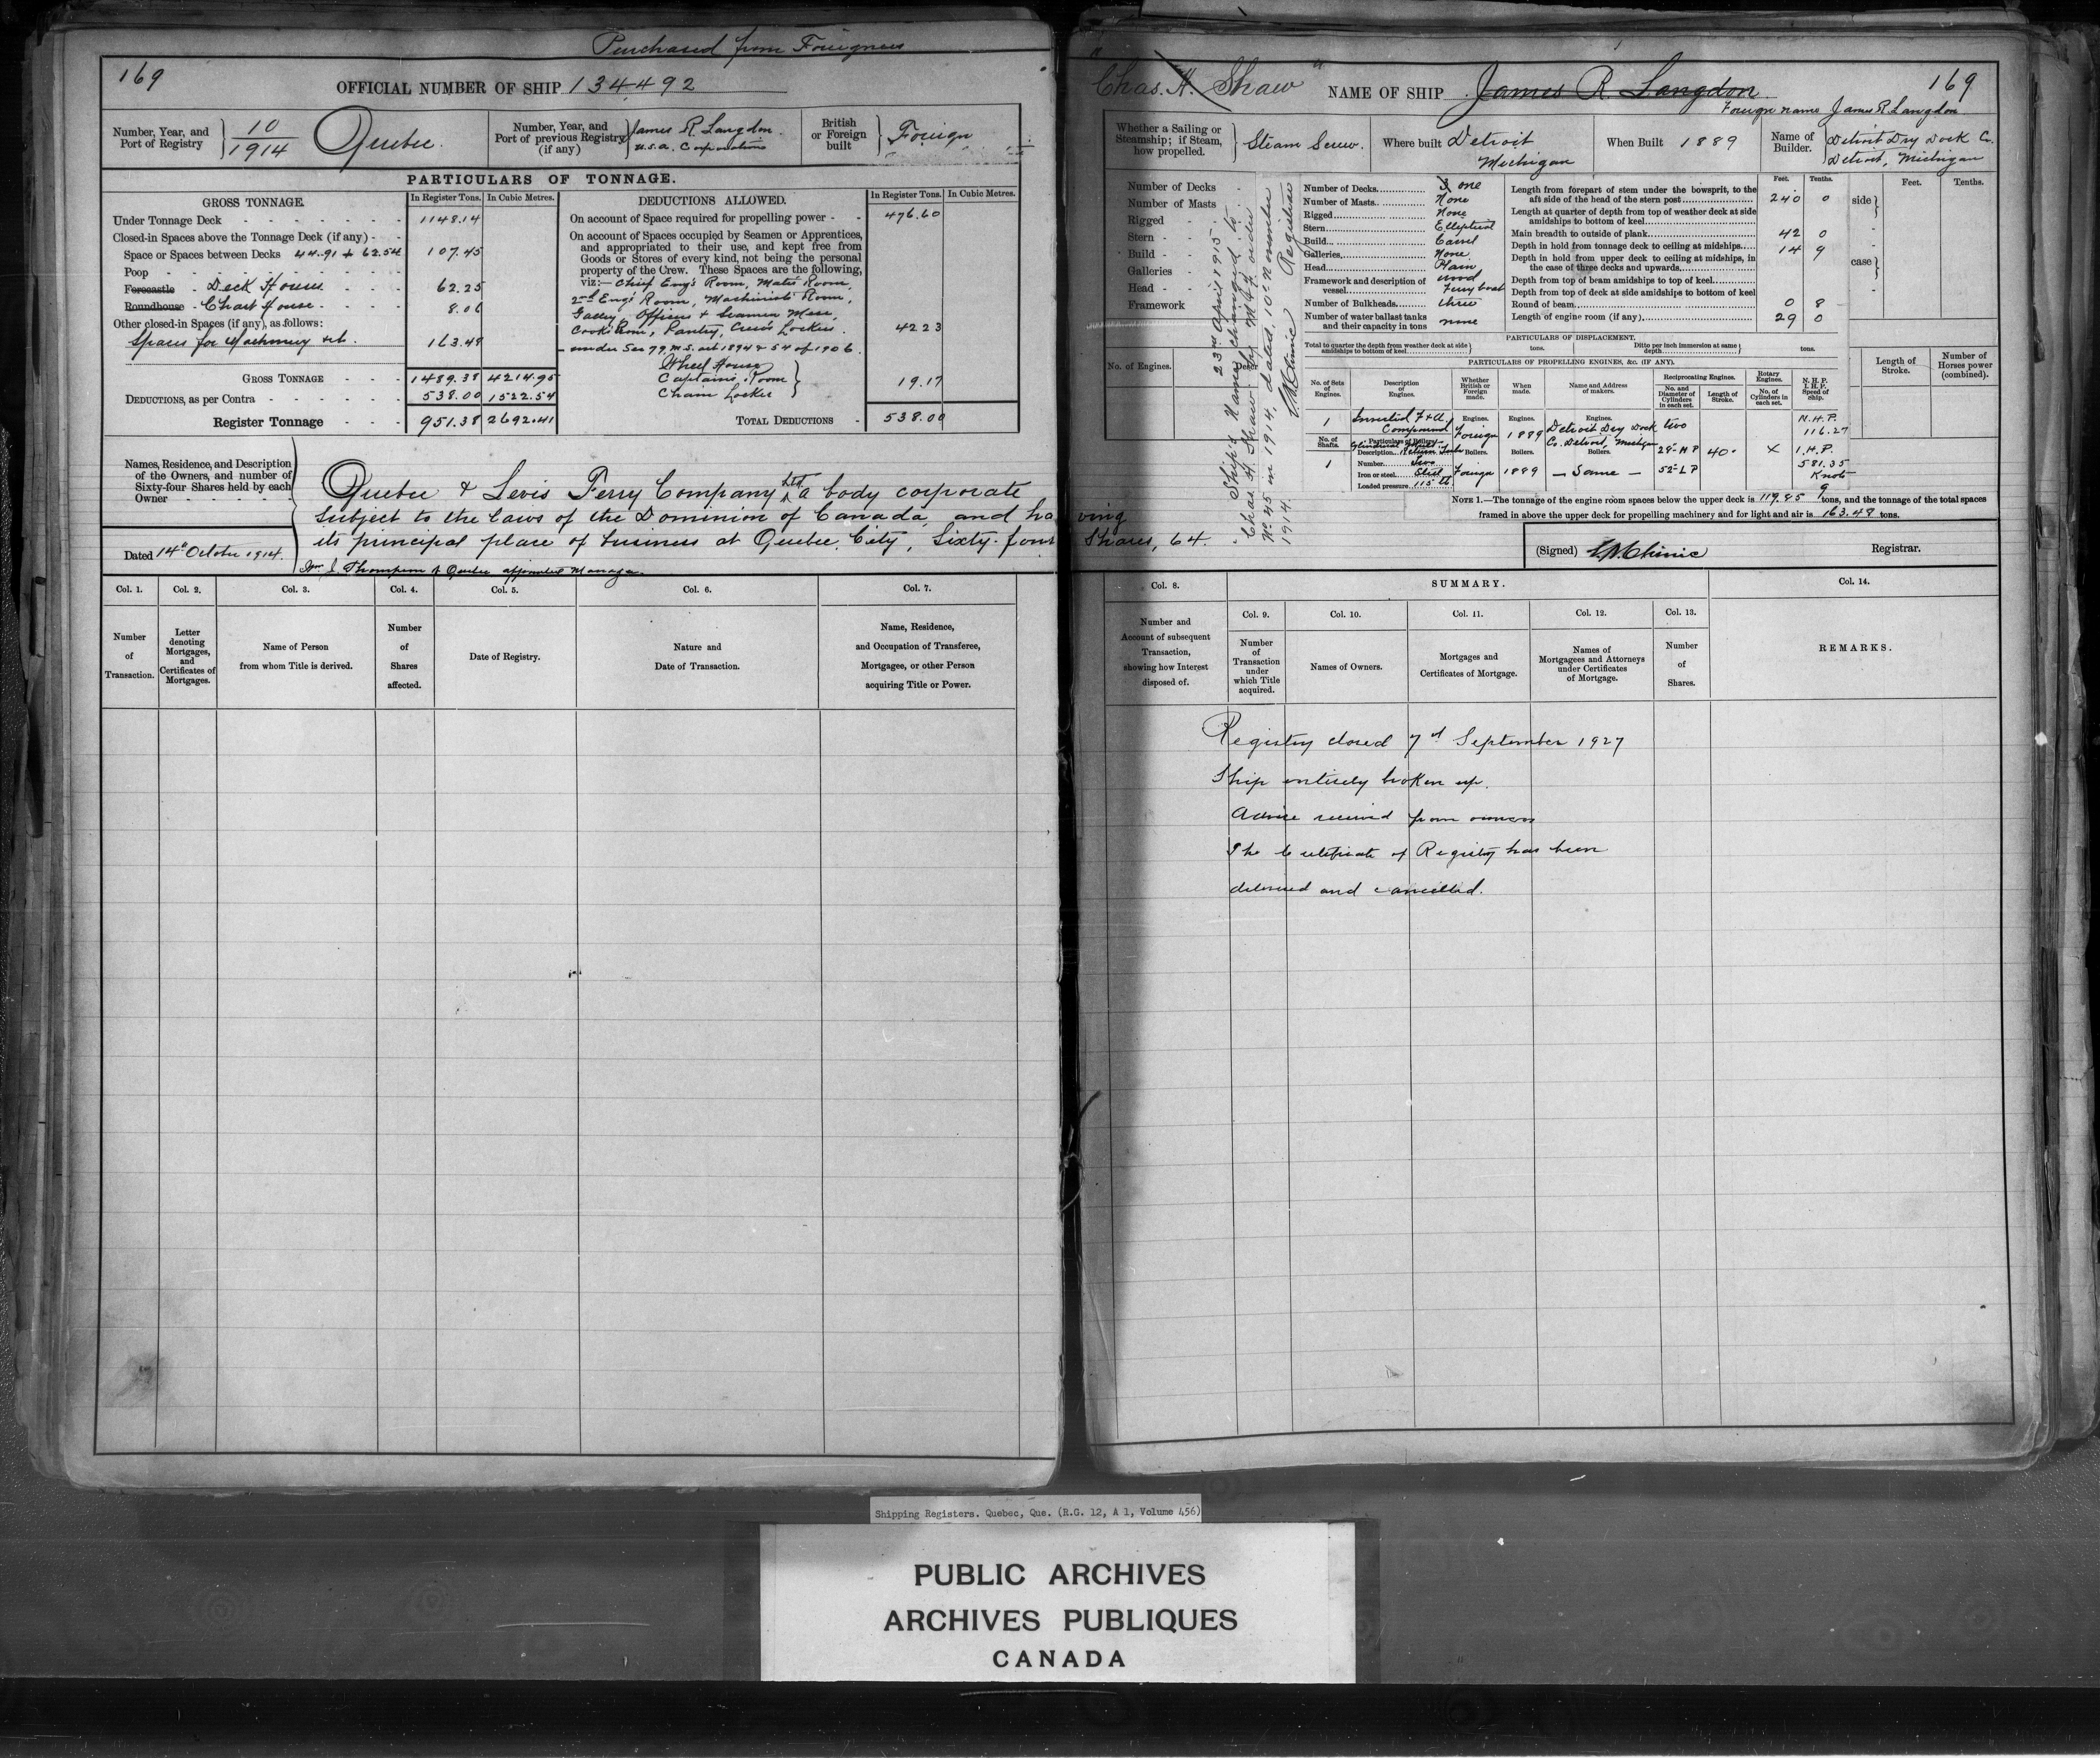 Purchased from Foreigners
169
OFFICIAL NUMBER OF SHIP 134492
Number, Year, and Port of Registry
10
1914
Quebec.
Number, Year, and Port of previous Registry (if any)
James R. Langdon.
U.S.A. Corporations
British or Foreign built
Foreign
PARTICULARS OF TONNAGE.
GROSS TONNAGE.
In Register Tons.
In Cubic Metres.
Under Tonnage Deck 1148.14
Closed-in Spaces above the Tonnage Deck (if any)
Space or Spaces between Decks 44.91 + 62.54 107.45
Poop
Forecastle Deck Houses 62.25
Roundhouse Chart House 8.06
Other closed-in Spaces (if any), as follows:
Spaces for Machinery 163.48
GROSS TONNAGE 1489.38 4214.95
DEDUCTIONS, as per Contra 538.00 1522.54
Register Tonnage 951.38 2692.41
DEDUCTIONS ALLOWED.
In Register Tons.
In Cubic Metres.
On account of Space required for propelling power 476.60
On account of Spaces occupied by Seamen or Apprentices,
and appropriated to their use, and kept free from
Goods or Stores of every kind, not being the personal
property of the Crew. These Spaces are the following,
viz:— Chief Eng's Room, Mates Room,
2nd Eng's Room, Machinists' Room,
Galley, Officers & Seamen Mess,
Cook's Room, Pantry, Crew's Lockers. 42.23
under Sec 79 M.S. act 1894 & 54 of 1906.
Wheel House
Captain's Room
Chain Locker
19.17
TOTAL DEDUCTIONS 538.00
Names, Residence, and Description
of the Owners, and number of
Sixty-four Shares held by each
Owner
Dated 14th October 1914.
Quebec & Levis Ferry Company Ltd a body corporate
subject to the laws of the Dominion of Canada, and having
its principal place of business at Quebec City, Sixty-four Shares, 64.
Wm. J. Thompson of Quebec appointed Manager.
Col. 1.
Number of Transaction.
Col. 2.
Letter denoting Mortgages, and Certificates of Mortgages.
Col. 3.
Name of Person from whom Title is derived.
Col. 4.
Number of Shares affected.
Col. 5.
Date of Registry.
Col. 6.
Nature and Date of Transaction.
Col. 7.
Name, Residence, and Occupation of Transferee, Mortgagee, or other Person acquiring Title or Power.
"Chas. H. Shaw"
NAME OF SHIP James R. Langdon
169
Foreign name James R Langdon
Whether a Sailing or Steamship; if Steam, how propelled.
Steam Screw.
Where built Detroit Michigan
When Built 1889
Name of Builder.
Detroit Dry Dock Co.
Detroit, Michigan
Number of Decks
Number of Masts
Rigged
Stern
Build
Galleries
Head
Framework
No. of Engines.
23rd April 1915.
Ship's Name changed to
"Chas. H. Shaw" by M & F. order
No. 45 in 1914, dated 10th November
1914.
Registrar
Number of Decks 3 one
Number of Masts None
Rigged None
Stern Elliptical
Build Carvel
Galleries None
Head Plain
Framework and description of vessel wood Ferry boat
Number of Bulkheads three
Number of water ballast tanks and their capacity in tons none
Feet. Tenths.
Length from forepart of stem under the bowsprit, to the aft side of the head of the stern post 240 0
Length at quarter of depth from top of weather deck at side amidships to bottom of keel
Main breadth to outside of plank 42 0
Depth in hold from tonnage deck to ceiling at midships 14 9
Depth in hold from upper deck to ceiling at midships, in the case of three decks and upwards
Depth from top of beam amidships to top of keel
Depth from top of deck at side amidships to bottom of keel
Round of beam 0 8
Length of engine room (if any) 29 0
side
case
Feet. Tenths.
PARTICULARS OF DISPLACEMENT.
Total to quarter the depth from weather deck at side amidships to bottom of keel tons.
Ditto per inch immersion at same depth tons.
PARTICULARS OF PROPELLING ENGINES, &c. (IF ANY).
No. of Sets of Engines.
Description of Engines.
Whether British or Foreign made.
When made.
Name and Address of makers.
Reciprocating Engines.
No. and Diameter of Cylinders in each set.
Length of Stroke.
Rotary Engines.
No. of Cylinders in each set.
N. H. P.
I. H. P.
Speed of Ship.
1
Inverted F & A Compound
Engines.
Foreign
Engines.
1889
Engines.
Detroit Dry Dock
Co. Detroit, Michigan
two
28" H P
52" L P
40"
X
N.H.P.
116.27
I.H.P.
581.35
Knots
9
No. of Shafts.
1
Particulars of Boilers.
Description
Number Two
Iron or steel Steel
Loaded pressure 115 lb
Boilers.
Foreign
Boilers.
1889
Boilers.
— Same —
Length of Stroke.
Number of Horses power (combined).
NOTE 1.—The tonnage of the engine room spaces below the upper deck is 119.85 tons, and the tonnage of the total spaces
framed in above the upper deck for propelling machinery and for light and air is 163.48 tons.
(Signed)
Registrar.
Col. 8.
Number and Account of subsequent Transaction, showing how Interest disposed of.
SUMMARY.
Col. 9.
Number of Transaction under which Title acquired.
Col. 10.
Names of Owners.
Col. 11.
Mortgages and Certificates of Mortgage.
Col. 12.
Names of Mortgagees and Attorneys under Certificates of Mortgage.
Col. 13.
Number of Shares.
Col. 14.
REMARKS.
Registry closed 7th September 1927
Ship entirely broken up.
Advice received from owners
The Certificate of Registry has been
delivered and cancelled.
Shipping Registers. Quebec, Que. (R.G. 12, A 1, Volume 456)
PUBLIC ARCHIVES
ARCHIVES PUBLIQUES
CANADA